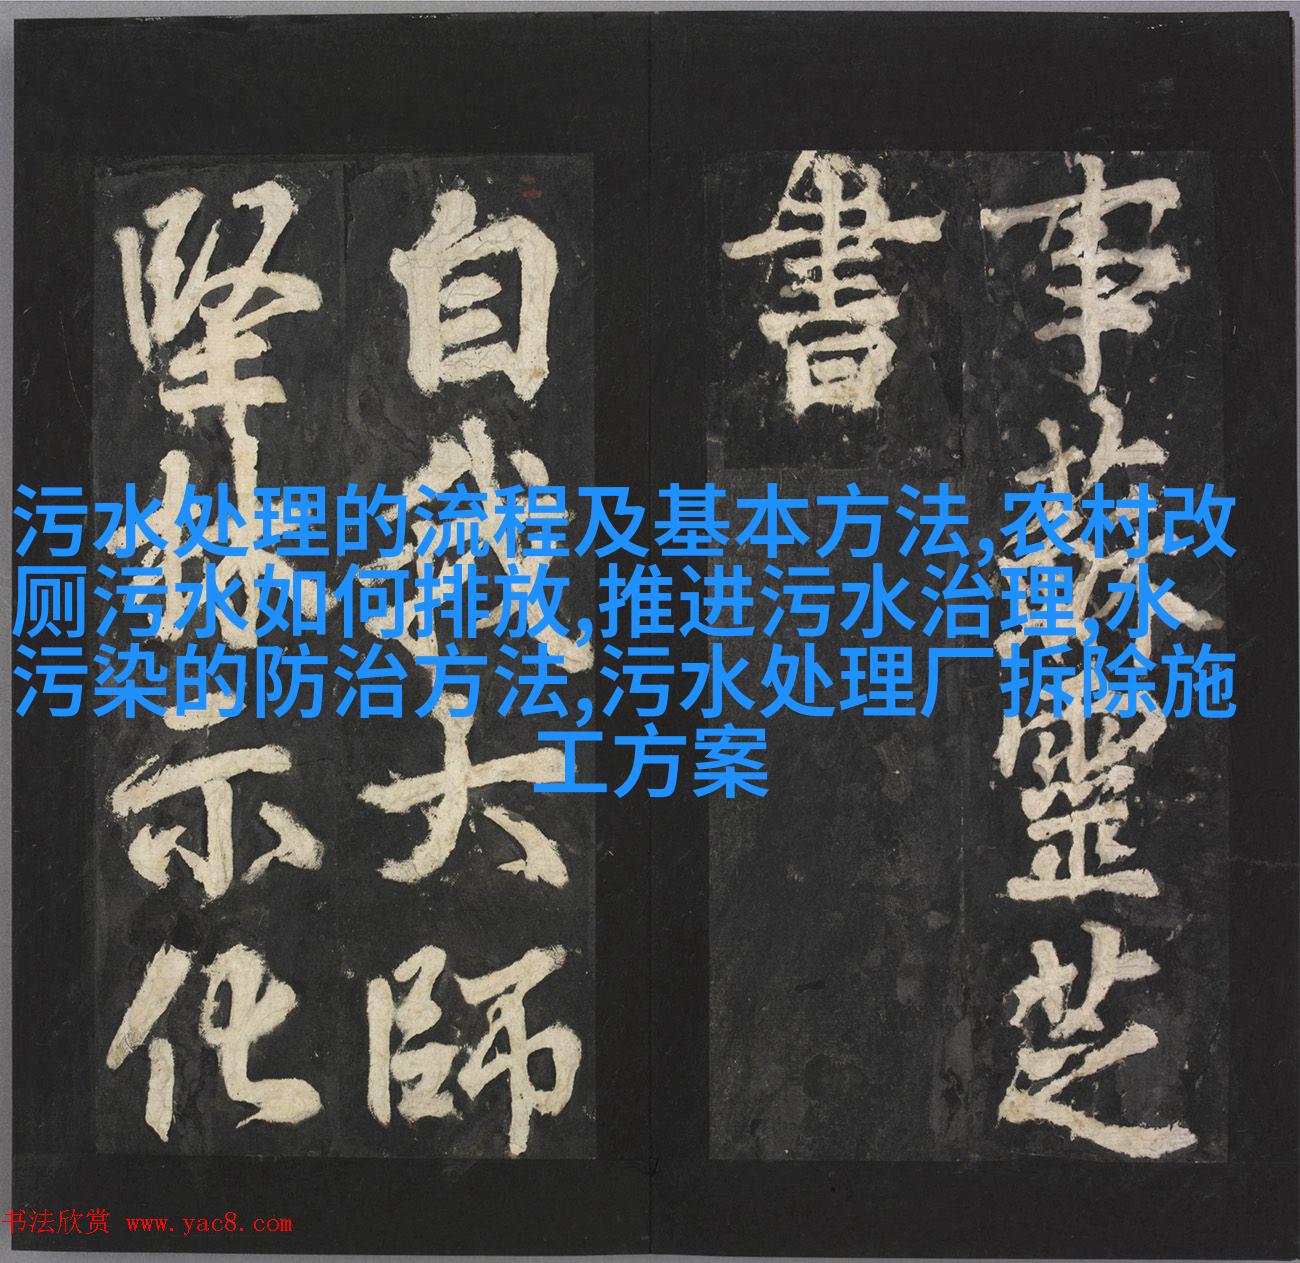 事蔡靈芝
書
自我大師
堅林示化
污水处理的流程及基本方法,农村改
厕污水如何排放,推进污水治理,水
污染的防治方法,污水处理厂拆除施
工方案
书法欣赏 www.yac8.com